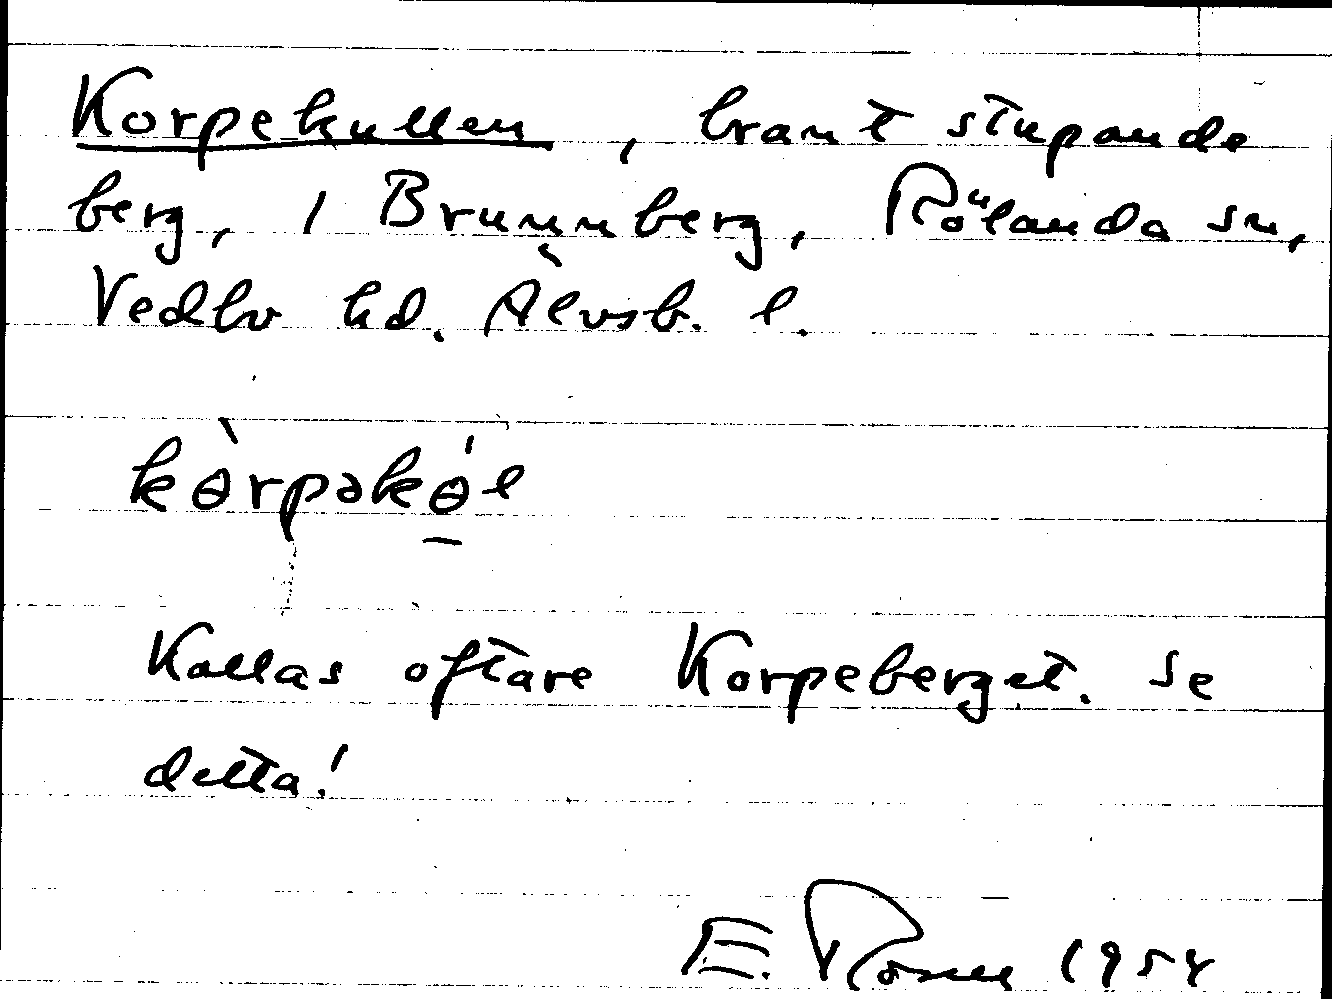 Korpekullen, brant stupande
berg, 1 Brunnberg, Rölanda sn,
Vedbo hd. Älvsb. l.
kɵ̀rpəkɵ́l
Kallas oftare Korpeberget. Se
detta!
E. Rosell 1954